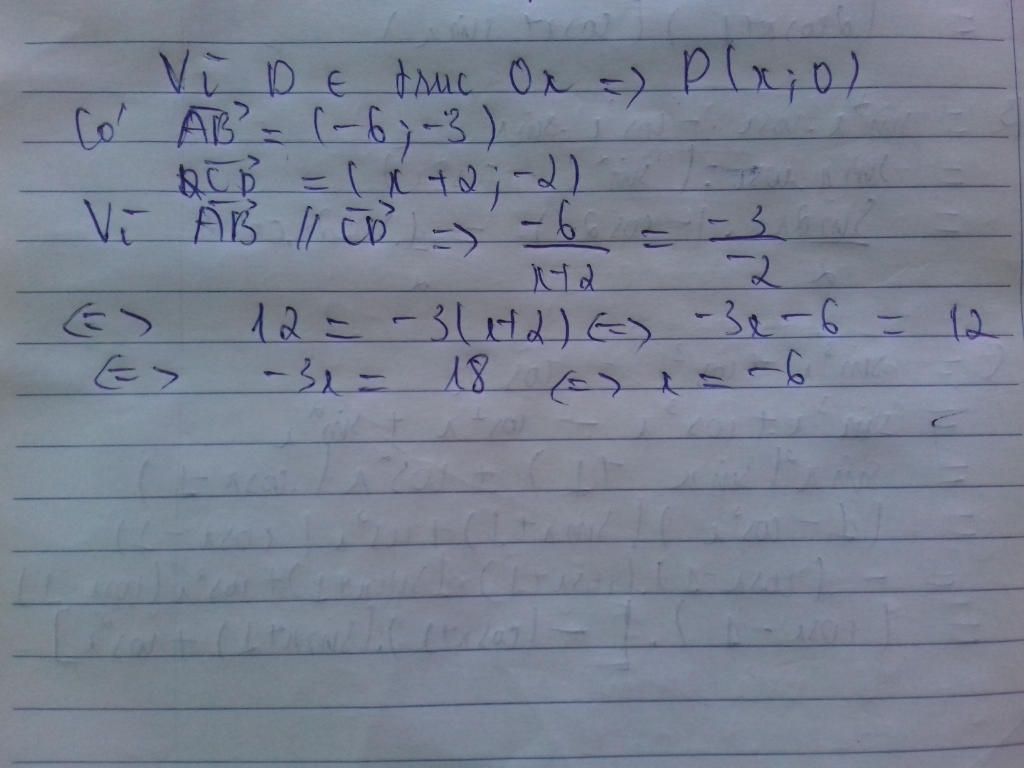 Vì D ∈ trục Ox => D(x; 0)
Có AB = (-6; -3)
CD = (x+2; -2)
Vì AB // CD => -6/(x+2) = -3/-2
<=> 12 = -3(x+2) <=> -3x - 6 = 12
<=> -3x = 18 <=> x = -6